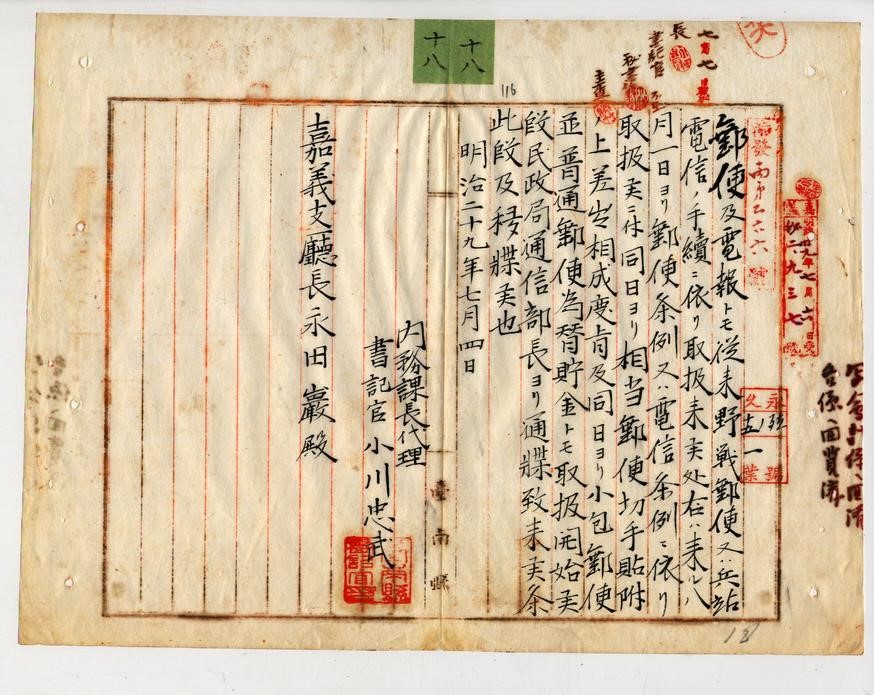 郵便及電報トモ従来野戦郵便又ハ兵站
電信ノ手續ニ依リ取扱来候処右ハ来ル八
月一日ヨリ郵便条例又ハ電信条例ニ依リ
取扱候ニ付同日ヨリ相当郵便切手貼附
ノ上差出相成度尚及同日ヨリ小包郵便
並普通郵便為替貯金トモ取扱開始候
段民政局通信部長ヨリ通牒致来候条
此段及移牒候也
明治二十九年七月四日
内務課長代理
書記官小川忠武
嘉義支廳長永田巖殿
臺南縣
十八
十八
116
七月七日
長
書記官
主査
南發
第二六六號
廿九年七月六日
二九三七
永
一
12